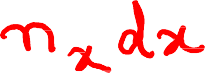 n_x dx